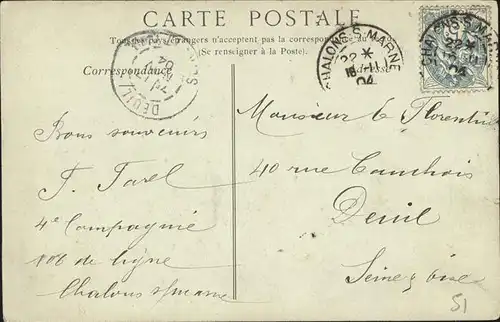 CARTE POSTALE
Tous les pays étrangers n'acceptent pas la correspondance au
(Se renseigner à la Poste).
Correspondance
Adresse
CHALONS S. MARNE
22 *
11
04
CHALONS S. MARNE
22 *
11
04
DEUIL
Bons souvenirs
F. Farel
4e Compagnie
106 de ligne
Chalons s/marne
Monsieur Le Florentin
40 rue Cauchois
Deuil
Seine & oise
51